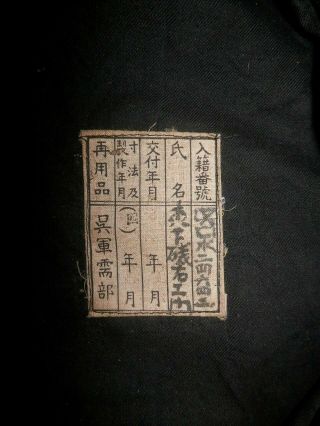 入籍番號 呉水二四六四二
氏名
交付年月 年 月
寸法及製作年月 (四) 年 月
再用品 呉軍需部